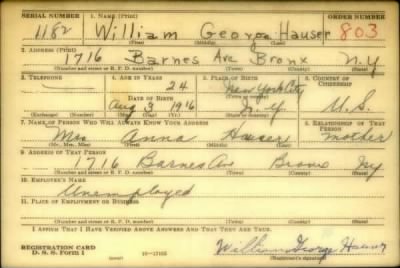 SERIAL NUMBER 1. NAME (Print) ORDER NUMBER
1182 William George Hauser 803
(First) (Middle) (Last)
2. ADDRESS (Print)
1716 Barnes Ave Bronx N.Y
(Number and street or R. F. D. number) (Town) (County) (State)
3. TELEPHONE 4. AGE IN YEARS 5. PLACE OF BIRTH 6. COUNTRY OF CITIZENSHIP
24 New York City
DATE OF BIRTH (Town or county)
Aug 3 1916 N.Y. U.S.
(Exchange) (Number) (Mo.) (Day) (Yr.) (State or country)
7. NAME OF PERSON WHO WILL ALWAYS KNOW YOUR ADDRESS 8. RELATIONSHIP OF THAT PERSON
Mrs Anna Hauser mother
(Mr., Mrs., Miss) (First) (Middle) (Last)
9. ADDRESS OF THAT PERSON
1716 Barnes Av Bronx Ny
(Number and street or R. F. D. number) (Town) (County) (State)
10. EMPLOYER'S NAME
Unemployed
11. PLACE OF EMPLOYMENT OR BUSINESS
(Number and street or R. F. D. number) (Town) (County) (State)
I AFFIRM THAT I HAVE VERIFIED ABOVE ANSWERS AND THAT THEY ARE TRUE.
REGISTRATION CARD William George Hauser
D. S. S. Form 1 (Registrant's signature)